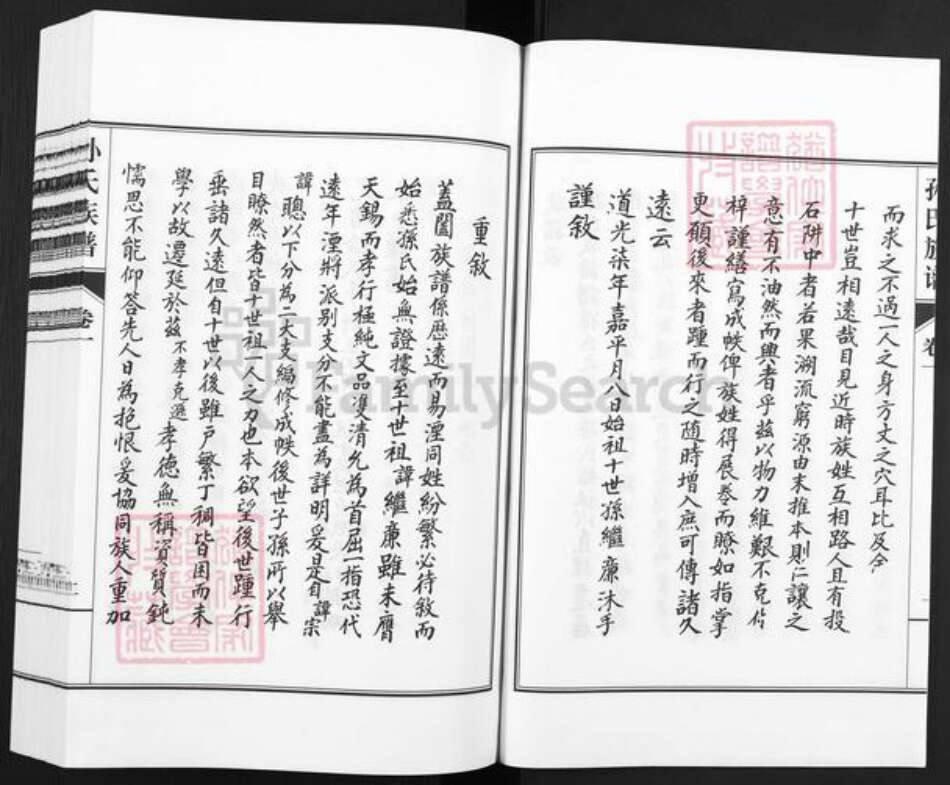 孫氏族譜 卷一
而求之不過一人之身方丈之穴耳比及今
十世豈相遠哉目見近時族姓互相路人且有投
石阱中者若果溯流窮源由末推本則仁讓之
意有不油然而興者乎茲以物力維艱不克付
梓謹繕寫成帙俾族姓得展卷而瞭如指掌
更願後來者踵而行之随時增入庶可傳諸久
遠云
道光柒年嘉平月八日始祖十世孫繼廉沐手
謹敘
重敘
蓋闔族譜係歷遠而易湮同姓紛繁必待敘而
始悉孫氏始無證據至十世祖諱繼廉雖未膺
天錫而孝行極純文品雙清允為首屈一指恐代
遠年湮將派别支分不能盡為詳明爰是自諱宗
諱聰以下分為二大支編修成帙後世子孫所以舉
目瞭然者皆十世祖一人之力也本欲望後世踵行
垂諸久遠但自十世以後雖户繁丁稠皆困而未
學以故遷延於茲不孝克遜孝德無稱資質鈍
懦思不能仰答先人日為抱恨爰協同族人重加
孙氏族譜 卷一
FamilySearch